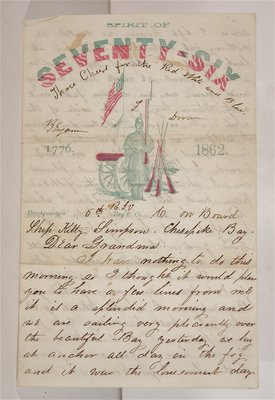 SPIRIT OF
SEVENTY-SIX
Three Cheers for the Red White and Blue
Benjamin F Brown
1776. 1862.
Headquarters 5th N.H. Reg't Co. on Board
Ship Kitty Simpson. Chesapike Bay.
Dear Grandma.
I have nothing to do this
morning so I thought it would please
you to have a few lines from me
it is a splendid morning and
we are sailing very pleasently over
the beautiful Bay yesterday we lay
at anchor all day in the fog
and it was the lonesomest day